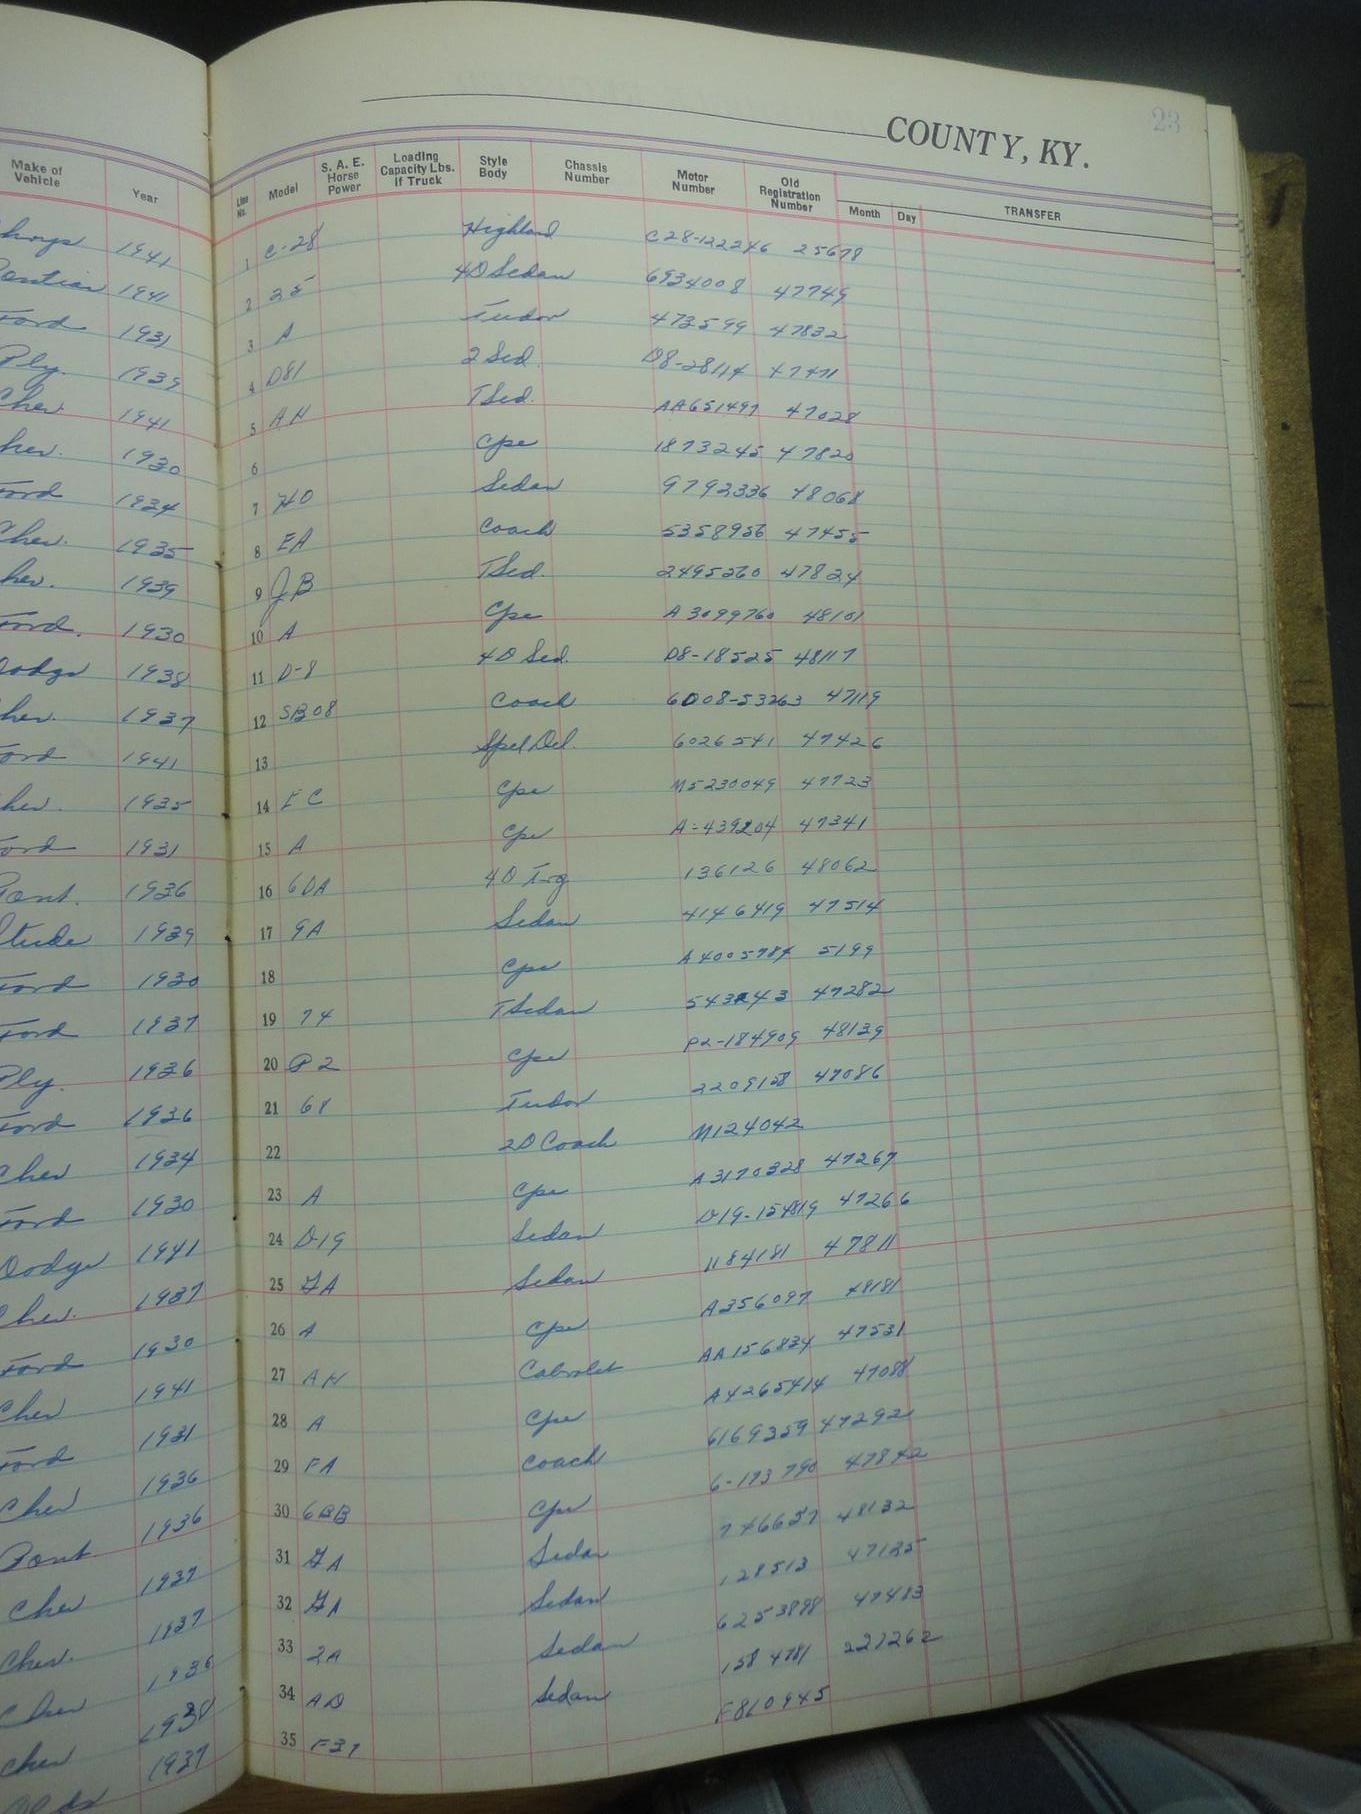 23
COUNTY, KY.
Make of Vehicle Year Line No. Model S. A. E. Horse Power Loading Capacity Lbs. If Truck Style Body Chassis Number Motor Number Old Registration Number Month Day TRANSFER
1941 1 C-28 Highland C28-122246 25678
1941 2 25 4D Sedan 6934008 47749
Ford 1931 3 A Tudor 473599 47832
Ply. 1939 4 D81 2 Sed. D8-28114 47471
Chev. 1941 5 AH TSed. AA651497 47028
1930 6 Cpe 1873245 47820
Ford 1934 7 HD Sedan 9792336 48068
Chev. 1935 8 EA Coach 5358956 47455
1939 9 JB TSed. 2495260 47824
Ford. 1930 10 A Cpe A3099760 48101
Dodge 1938 11 D-8 4D Sed. D8-18525 48117
1937 12 SB08 Coach 6D08-53263 47119
Ford 1941 13 Spel Del. 6026541 47426
1935 14 EC Cpe M5230049 47723
Ford 1931 15 A Cpe A-439204 47341
Pont. 1936 16 6DA 4D Trg 136126 48062
Stude 1939 17 9A Sedan 4146419 47514
Ford 1930 18 Cpe A4005784 5199
Ford 1937 19 74 TSedan 47282
Ply. 1936 20 P2 Cpe P2-184909 48139
Ford 1936 21 68 Tudor 2209158 47086
Chev 1934 22 2D Coach M124042
Ford 1930 23 A Cpe A3170328 47267
Dodge 1941 24 D-19 Sedan D19-154819 47266
Chev. 1937 25 GA Sedan 1184181 47811
Ford 1930 26 A Cpe A356097 48181
Chev 1941 27 AH Cabrolet AA156834 47531
Ford 1931 28 A Cpe A4265414 47088
Chev 1936 29 FA Coach 6169359 47292
Pont 1936 30 6BB Cpe 6-173790 47842
Chev 1937 31 GA Sedan 746657 48132
Chev. 1937 32 GA Sedan 128513 47125
Chev 1936 33 2A Sedan 6253898 47413
Chev 1938 34 AD Sedan 1584781 227262
Olds 1937 35 F37 F810945